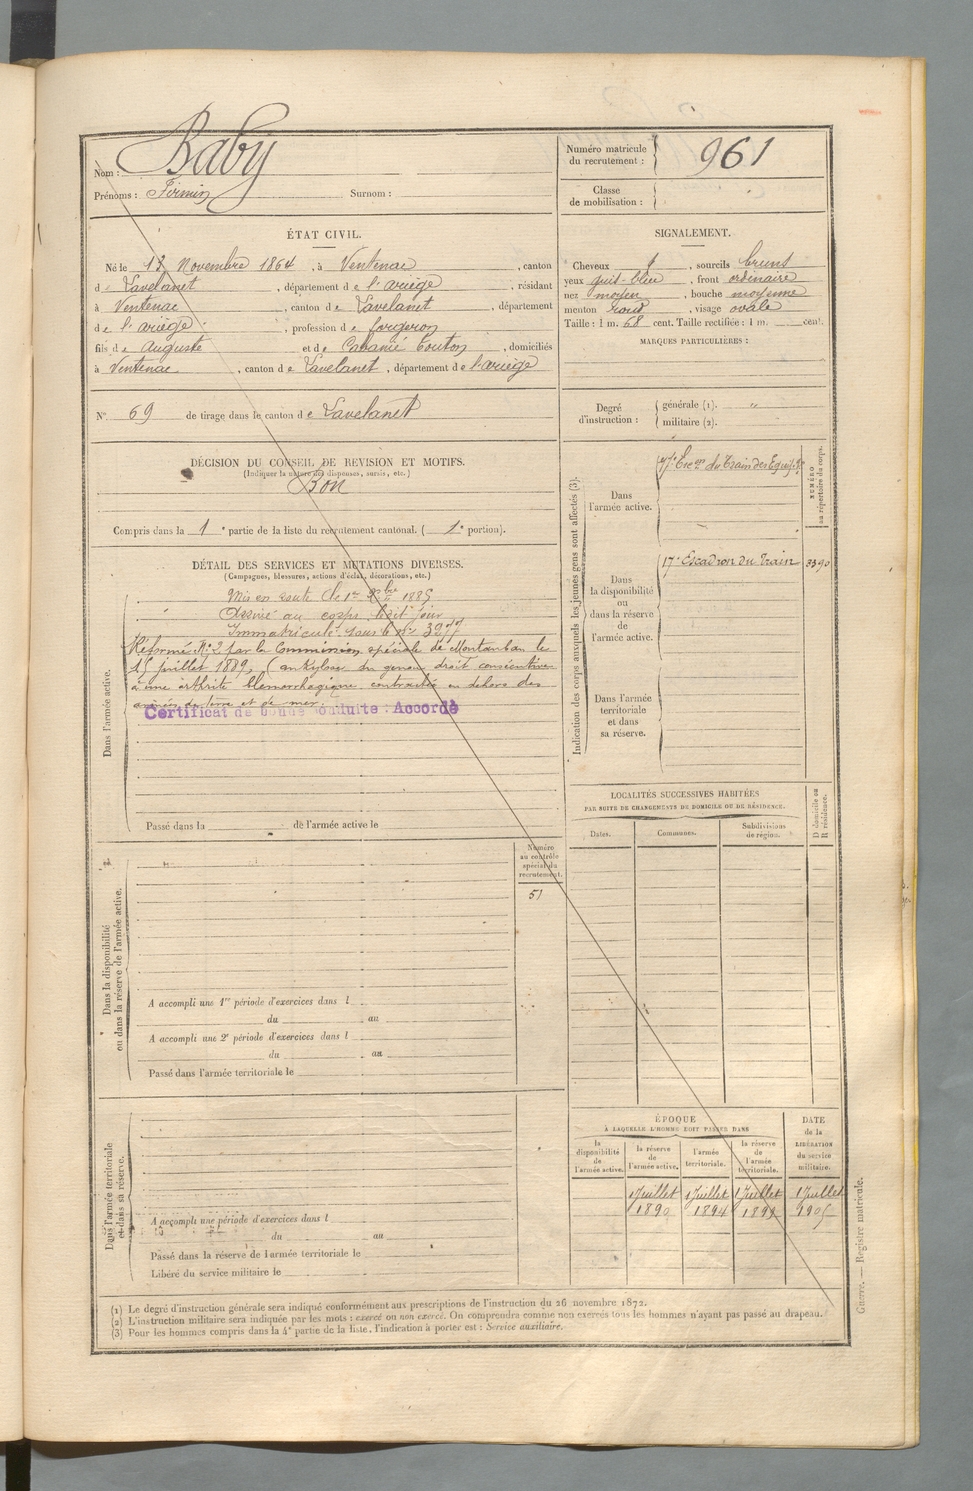 Nom : Baby
Prénoms : Firmin Surnom :
Numéro matricule du recrutement : 961
Classe de mobilisation :
ÉTAT CIVIL.
Né le 12 Novembre 1864, à Ventenac, canton
de Lavelanet, département de l'ariège, résidant
à Ventenac, canton de Lavelanet, département
de l'ariège, profession de forgeron
fils de Auguste et de Cabanié Touton, domiciliés
à Ventenac, canton de Lavelanet, département de l'ariège
SIGNALEMENT.
Cheveux, sourcils bruns
yeux gris-bleu, front ordinaire
nez moyen, bouche moyenne
menton rond, visage ovale
Taille : 1 m. 68 cent. Taille rectifiée : 1 m. cent.
MARQUES PARTICULIÈRES :
N° 69 de tirage dans le canton de Lavelanet
Degré d'instruction : générale (1). "
militaire (2).
DÉCISION DU CONSEIL DE REVISION ET MOTIFS.
(Indiquer la nature des dispenses, sursis, etc.)
Bon
Compris dans la 1e partie de la liste du recrutement cantonal. (1e portion).
DÉTAIL DES SERVICES ET MUTATIONS DIVERSES.
(Campagnes, blessures, actions d'éclat, décorations, etc.)
Dans l'armée active.
Mis en route le 1er Xbre 1885
Arrivé au corps le dit jour
Immatriculé sous le n° 3977
Réformé N° 2 par la Commission spéciale de Montauban le
15 juillet 1889, (ankylose du genou droit consécutive
à une arthrite blennorrhagique contractée en dehors des
armées de terre et de mer.
Certificat de bonne conduite : Accordé
Passé dans la de l'armée active le
Indication des corps auxquels les jeunes gens sont affectés (3).
NUMÉRO au répertoire du corps.
Dans l'armée active.
17e Escon du Train des Equip.
Dans la disponibilité ou dans la réserve de l'armée active.
17e Escadron du Train 3390
Dans l'armée territoriale et dans sa réserve.
LOCALITÉS SUCCESSIVES HABITÉES
PAR SUITE DE CHANGEMENTS DE DOMICILE OU DE RÉSIDENCE.
Dates. Communes. Subdivisions de région. D domicile ou R résidence.
Dans la disponibilité ou dans la réserve de l'armée active.
Numéro au contrôle spécial du recrutement.
51
A accompli une 1re période d'exercices dans l
du au
A accompli une 2e période d'exercices dans l
du au
Passé dans l'armée territoriale le
Dans l'armée territoriale et dans sa réserve.
A accompli une période d'exercices dans l
du au
Passé dans la réserve de l'armée territoriale le
Libéré du service militaire le
ÉPOQUE
À LAQUELLE L'HOMME DOIT PASSER DANS
la disponibilité de l'armée active. la réserve de l'armée active. l'armée territoriale. la réserve de l'armée territoriale.
DATE de la LIBÉRATION du service militaire.
1 Juillet 1 Juillet 1 Juillet 1 Juillet
1890 1894 1899 1905
(1) Le degré d'instruction générale sera indiqué conformément aux prescriptions de l'instruction du 26 novembre 1872.
(2) L'instruction militaire sera indiquée par les mots : exercé ou non exercé. On comprendra comme non exercés tous les hommes n'ayant pas passé au drapeau.
(3) Pour les hommes compris dans la 4e partie de la liste, l'indication à porter est : Service auxiliaire.
Guerre. — Registre matricule.